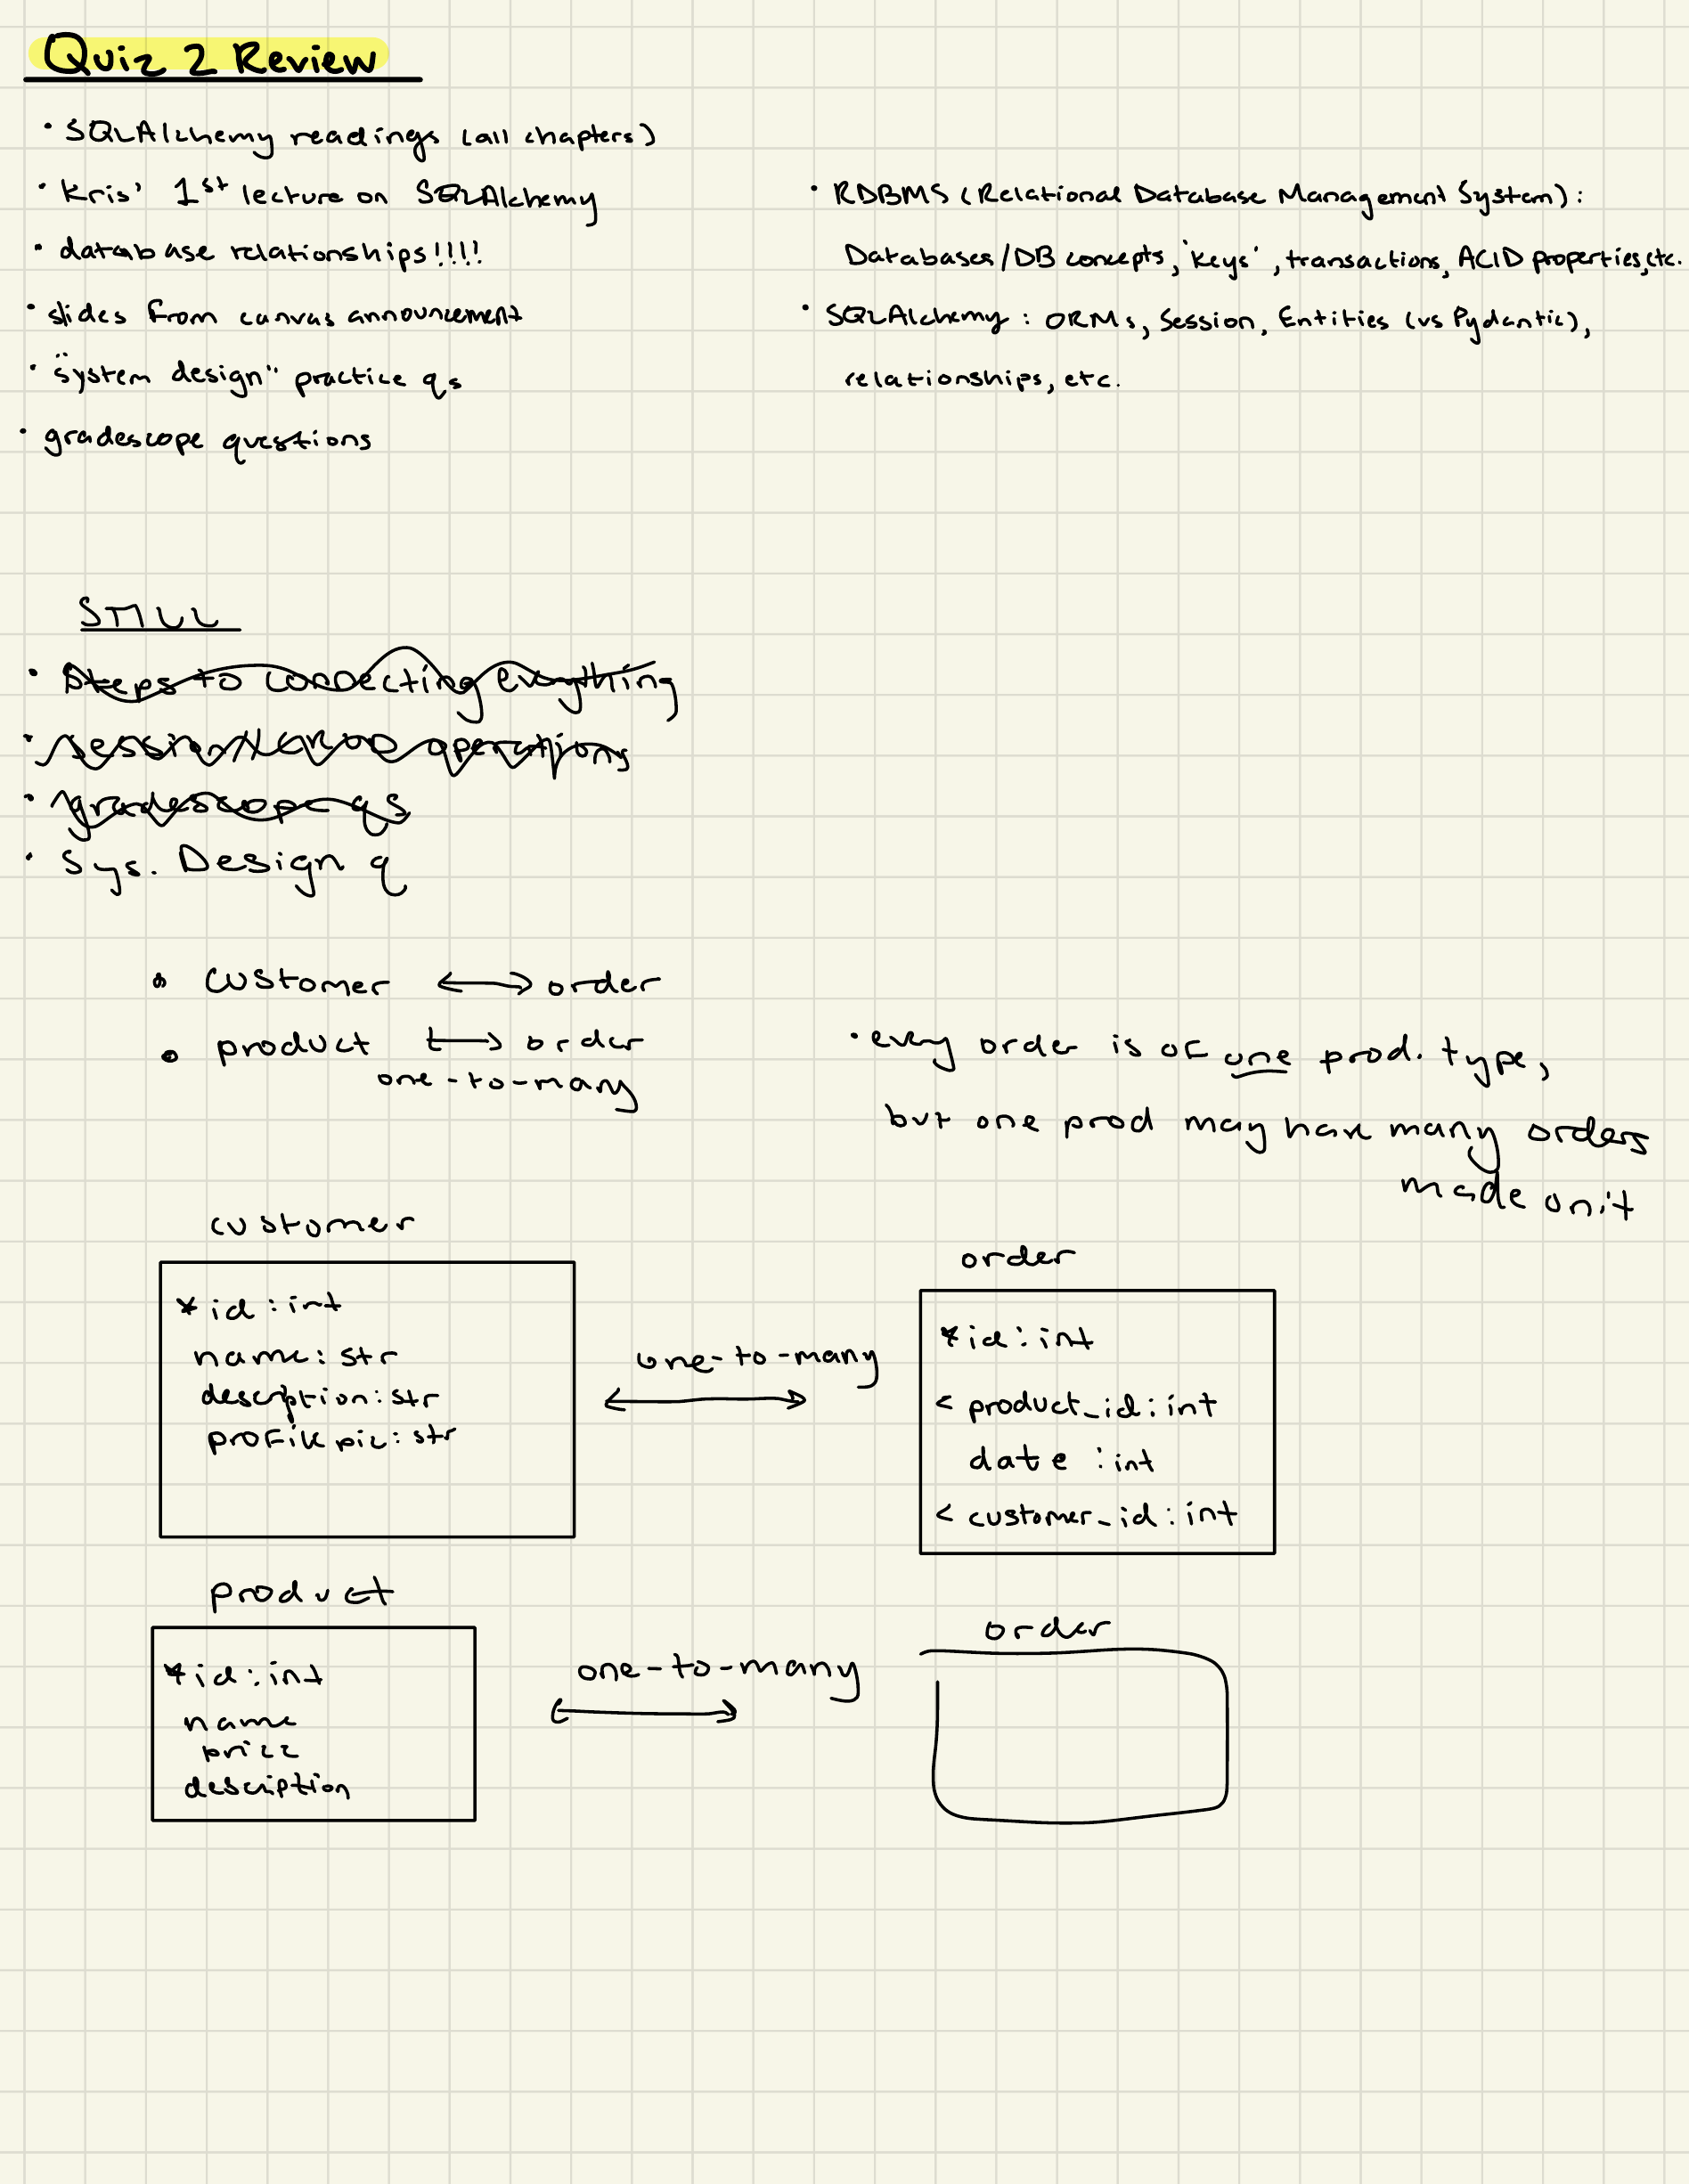 Quiz 2 Review
• SQLAlchemy readings (all chapters)
• Kris' 1st lecture on SQLAlchemy
• database relationships!!!!
• slides from canvas announcement
• "system design" practice qs
• gradescope questions
• RDBMS (Relational Database Management System):
Databases/DB concepts, 'keys', transactions, ACID properties, etc.
• SQLAlchemy: ORMs, Session, Entities (vs Pydantic),
relationships, etc.
STILL
• Steps to connecting everything
• Session/CRUD operations
• gradescope qs
• Sys. Design q
• customer ↔ order
• product ↔ order
one-to-many
• every order is of one prod. type,
but one prod may have many orders
made on it
customer
* id: int
name: str
description: str
profile pic: str
one-to-many
order
* id: int
< product_id: int
date: int
< customer_id: int
product
* id: int
name
price
description
one-to-many
order